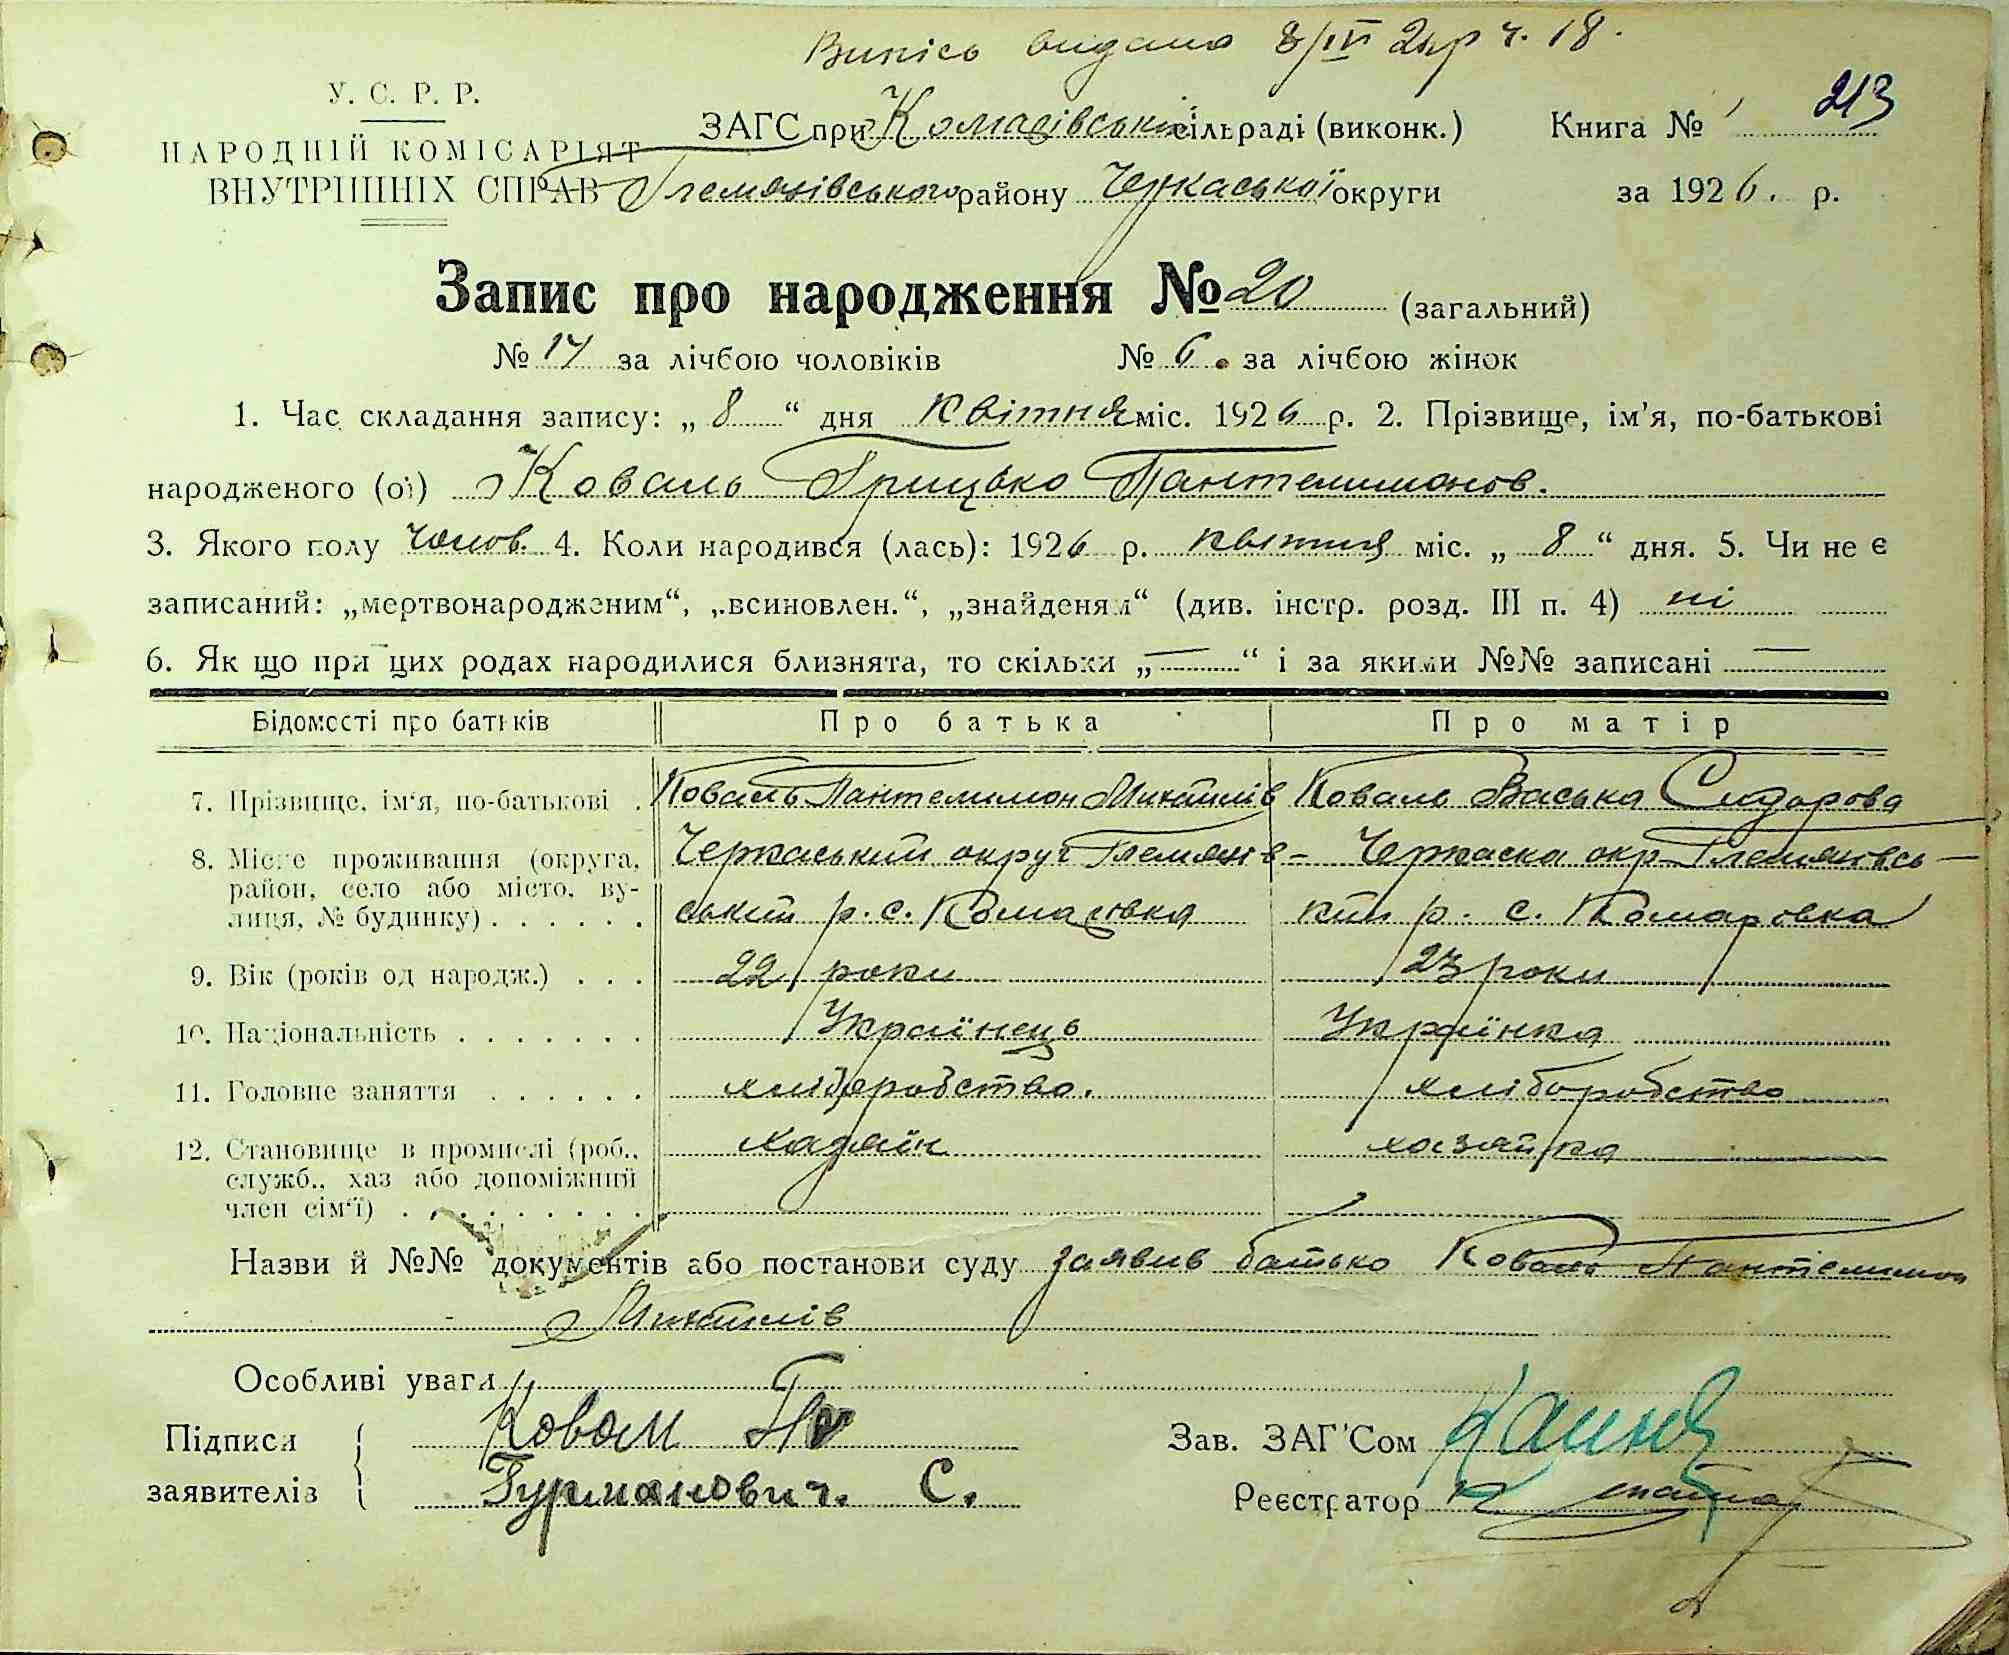 Випись видана 8/IV 26 р ч. 18.
213
У. С. Р. Р.
НАРОДНІЙ КОМІСАРІЯТ
ВНУТРІШНІХ СПРАВ
ЗАГС при Комарівській сільраді (виконк.) Книга №
Гемязівського району Черкаської округи за 1926. р.
Запис про народження № 20 (загальний)
№ 14 за лічбою чоловіків № 6. за лічбою жінок
1. Час складання запису: „ 8 “ дня квітня міс. 1926 р. 2. Прізвище, ім'я, по-батькові
народженого (ої) Коваль Грицько Пантелимонов.
3. Якого полу чолов. 4. Коли народився (лась): 1926 р. квітня міс. „ 8 “ дня. 5. Чи не є
записаний: „мертвонародженим“, „всиновлен.“, „знайденям“ (див. інстр. розд. III п. 4) ні
6. Як що при цих родах народилися близнята, то скільки „ — “ і за якими №№ записані —
Відомості про батьків Про батька Про матір
7. Прізвище, ім‘я, по-батькові . Коваль Пантелимон Михайлів Коваль Васька Сидорова
8. Місце проживання (округа, Черкаський округ Гемязів- Черкаска окр Гемязівсь-
район, село або місто, ву-
лиця, № будинку) . . . . . . ський р. с. Комарівка кий р. с. Комаровка
9. Вік (років од народж.) . . . 22 роки 23 роки
10. Національність . . . . . . . Українець Українка
11. Головне заняття . . . . . . хліборобство. хліборобство
12. Становище в промислі (роб., хазяїн хазяйка
служб., хаз або допоміжний
член сім‘ї) . . . . . . . . .
Назви й №№ документів або постанови суду заявив батько Коваль Пантелимон
Михайлів
Особливі уваги
Підписи Коваль П Зав. ЗАГ'Сом
заявителів Гурманович. С. Реєстратор